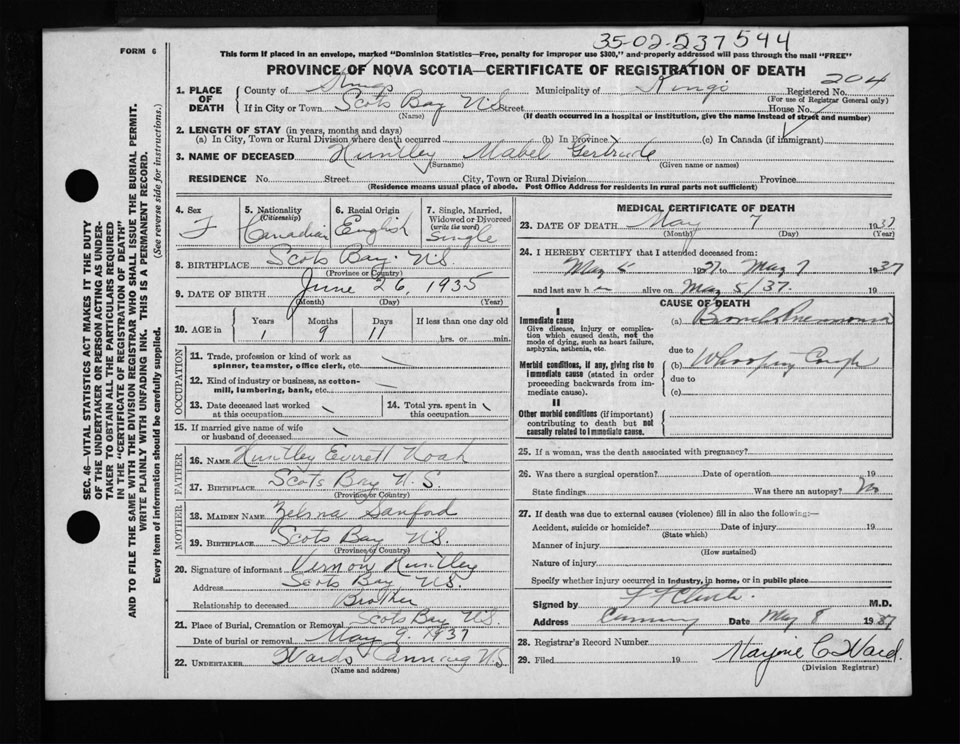 FORM 6
35-02-237544
This form if placed in an envelope, marked "Dominion Statistics—Free, penalty for improper use $300," and properly addressed will pass through the mail "FREE"
PROVINCE OF NOVA SCOTIA—CERTIFICATE OF REGISTRATION OF DEATH
1. PLACE OF DEATH
County of Kings Municipality of Kings Registered No. 204
(For use of Registrar General only)
If in City or Town Scots Bay N.S. Street House No.
(Name) (If death occurred in a hospital or institution, give the name instead of street and number)
2. LENGTH OF STAY (in years, months and days)
(a) In City, Town or Rural Division where death occurred (b) In Province (c) In Canada (if immigrant)
3. NAME OF DECEASED Huntley Mabel Gertrude
(Surname) (Given name or names)
RESIDENCE No. Street City, Town or Rural Division Province
(Residence means usual place of abode. Post Office Address for residents in rural parts not sufficient)
4. Sex F
5. Nationality (Citizenship) Canadian
6. Racial Origin English
7. Single, Married, Widowed or Divorced (write the word) Single
8. BIRTHPLACE Scots Bay N.S.
(Province or Country)
9. DATE OF BIRTH June 26, 1935
(Month) (Day) (Year)
10. AGE in Years Months Days If less than one day old
1 9 11 hrs. or min.
OCCUPATION
11. Trade, profession or kind of work as spinner, teamster, office clerk, etc.
12. Kind of industry or business, as cotton-mill, lumbering, bank, etc.
13. Date deceased last worked at this occupation
14. Total yrs. spent in this occupation
15. If married give name of wife or husband of deceased
FATHER
16. NAME Huntley Everett Noah
17. BIRTHPLACE Scots Bay N.S.
(Province or Country)
MOTHER
18. MAIDEN NAME Zelma Sanford
19. BIRTHPLACE Scots Bay N.S.
(Province or Country)
20. Signature of informant Vernon Huntley
Address Scots Bay N.S.
Relationship to deceased Brother
21. Place of Burial, Cremation or Removal Scots Bay N.S.
Date of burial or removal May 9 1937
22. UNDERTAKER Wards Canning N.S.
(Name and address)
MEDICAL CERTIFICATE OF DEATH
23. DATE OF DEATH May 7 1937
(Month) (Day) (Year)
24. I HEREBY CERTIFY that I attended deceased from:
May 5 1937 to May 7 1937
and last saw h alive on May 5/37. 19
CAUSE OF DEATH
I
Immediate cause
Give disease, injury or complication which caused death, not the mode of dying, such as heart failure, asphyxia, asthenia, etc.
(a)
due to
Morbid conditions, if any, giving rise to immediate cause (stated in order proceeding backwards from immediate cause).
(b) Whooping Cough
due to
(c)
II
Other morbid conditions (if important) contributing to death but not causally related to immediate cause.
25. If a woman, was the death associated with pregnancy?
26. Was there a surgical operation? Date of operation 19
State findings Was there an autopsy? No
27. If death was due to external causes (violence) fill in also the following:—
Accident, suicide or homicide? Date of injury 19
(State which)
Manner of injury
(How sustained)
Nature of injury
Specify whether injury occurred in industry, in home, or in public place
Signed by M.D.
Address Canning Date May 8 1937
28. Registrar's Record Number
29. Filed 19 Marjorie C Ward.
(Division Registrar)
SEC. 46—VITAL STATISTICS ACT MAKES IT THE DUTY
OF THE UNDERTAKER OR PERSON ACTING AS UNDER-
TAKER TO OBTAIN ALL THE PARTICULARS REQUIRED
IN THE "CERTIFICATE OF REGISTRATION OF DEATH"
AND TO FILE THE SAME WITH THE DIVISION REGISTRAR WHO SHALL ISSUE THE BURIAL PERMIT.
WRITE PLAINLY WITH UNFADING INK. THIS IS A PERMANENT RECORD.
Every item of information should be carefully supplied. (See reverse side for instructions.)